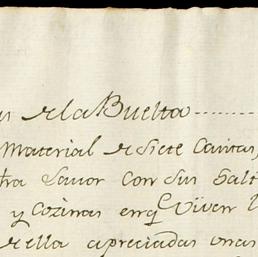 de la Buelta
Material de siete Casitas,
tra Lauor con sus Salt
y Cozinas enq̃ Viven l
de ella apreciadas unas